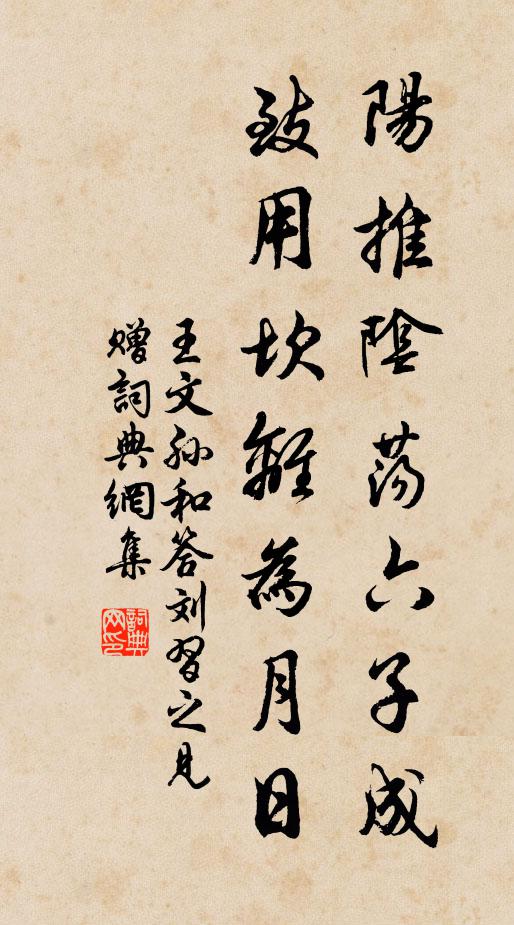 陽推陰蕩六子成
致用坎離為月日
王文孙和答刘習之見
赠詞典網集
詞典
网印